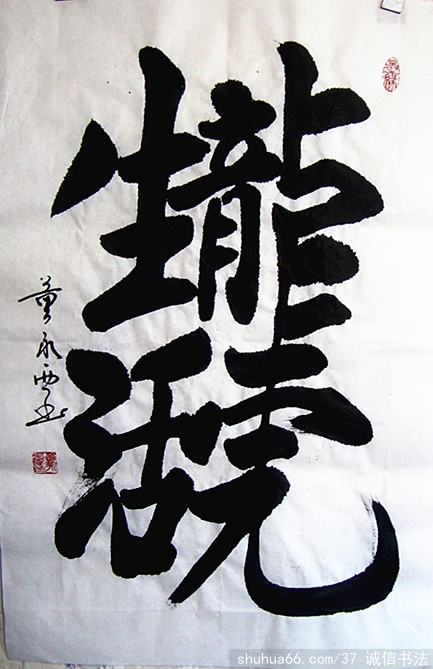 生龍
活虎
董永西书
shuhua66.com/37 诚信书法